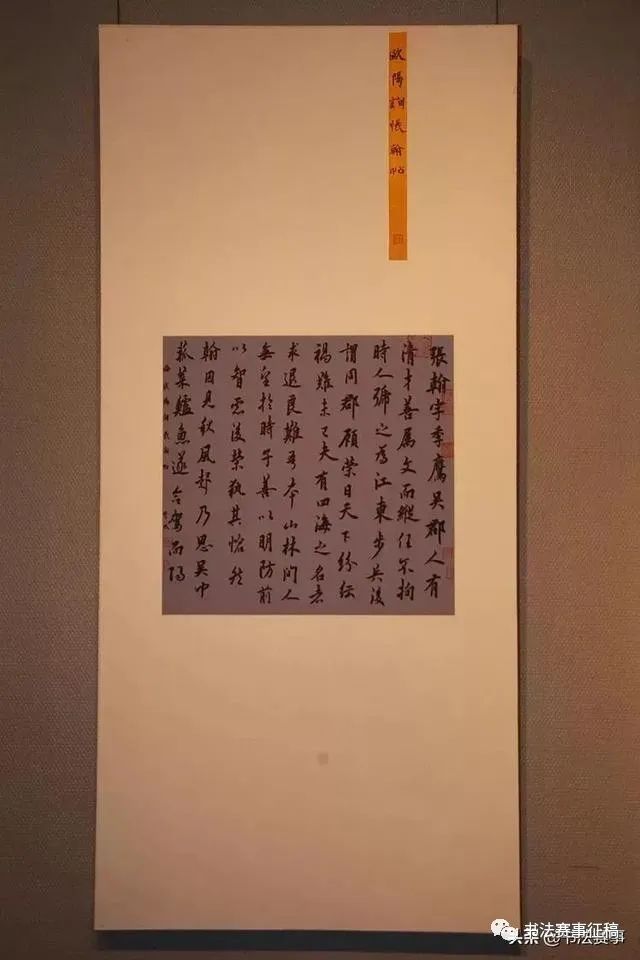 欧陽詢張翰帖
張翰字季鷹吳郡人有
清才善属文而縱任不拘
時人號之為江東步兵後
謂同郡顧榮曰天下紛紜
禍難未已夫有四海之名者
求退良難吾本山林間人
無望於時子善以明防前
以智慮後榮執其愴然
翰因見秋風起乃思吳中
菰菜鱸魚遂命駕而歸
书法赛事征稿
头条 @书法赛事